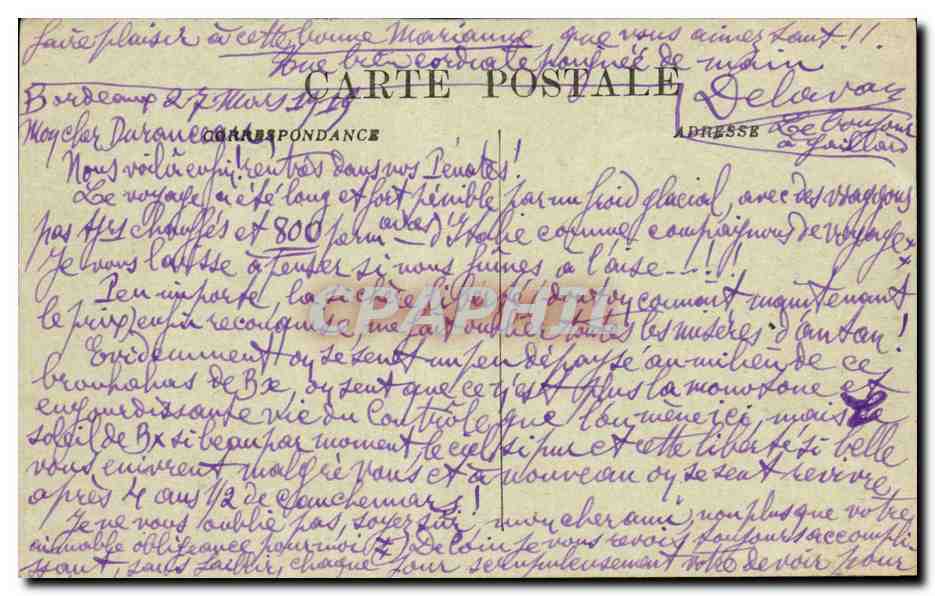 faire plaisir à cette bonne Marianne que vous aimez tant !!
Une bien cordiale poignée de main
CARTE POSTALE
Delavau
Bordeaux 27 Mars 1919
CORRESPONDANCE
ADRESSE
Le bonjour
à Gaillard
Mon cher
Nous voilà enfin rentrés dans nos Pénates!
Le voyage a été long et fort pénible par un froid glacial, avec des waggons
pas très chauffés et 800 d'Italie comme compagnons de voyage
Je vous laisse à penser si nous fûmes à l'aise....!!!!
Peu importe, la sicrée liberté dont on connait maintenant
CPAPHIL
le prix, enfin reconquise, me fait oublier toutes les misères d'antan!
Evidemment on se sent un peu dépaysé au milieu de ce
brouhahas de Bx, on sent que ce n'est plus la monotone et
engourdissante vie du Contrôle que l'on mène ici, mais le
soleil de Bx si beau par moment, le ciel si pur et cette liberté si belle
vous enivrent malgré vous et à nouveau on se sent revivre,
après 4 ans 1/2 de Cauchemars!
Je ne vous oublie pas, soyez sûr, mon cher ami, non plus que votre
aimable obligeance pour moi De loin je vous revois toujours accomplis-
sant, sans faiblir, chaque jour scrupuleusement votre devoir pour